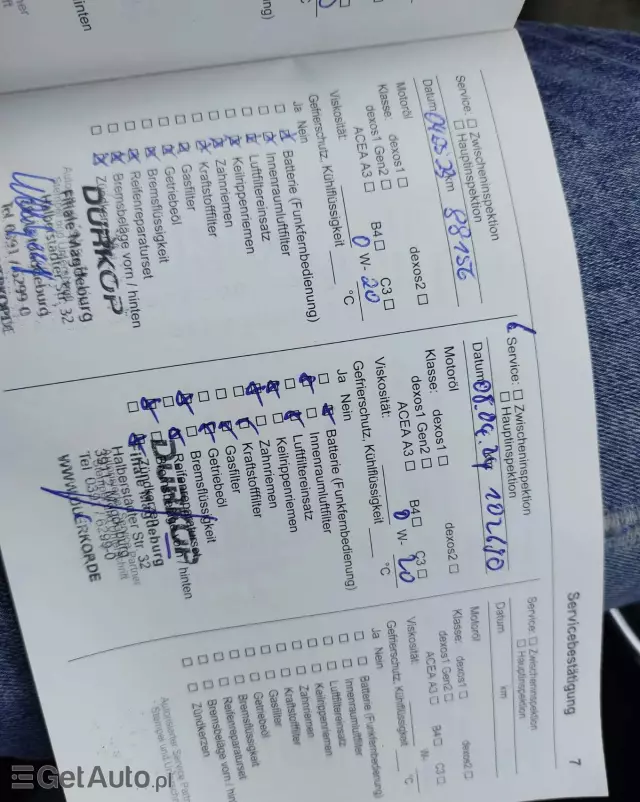 Servicebestätigung 7
Service: Zwischeninspektion
Hauptinspektion
Datum km 88156
Motoröl
Klasse: dexos1 dexos2
dexos1 Gen2 B4 C3
ACEA A3
Viskosität: 0 W- 20
Gefrierschutz, Kühlflüssigkeit °C
Ja Nein
Batterie (Funkfernbedienung)
Innenraumluftfilter
Luftfiltereinsatz
Keilrippenriemen
Zahnriemen
Kraftstofffilter
Gasfilter
Getriebeöl
Bremsflüssigkeit
Reifenreparaturset
Bremsbeläge vorn / hinten
DÜRKOP
Filiale Magdeburg
Service: Zwischeninspektion
Hauptinspektion
Datum 08.04.24 102480
Motoröl
Klasse: dexos1 dexos2
dexos1 Gen2 B4 C3
ACEA A3
Viskosität: 0 W- 20
Gefrierschutz, Kühlflüssigkeit °C
Ja Nein
Batterie (Funkfernbedienung)
Innenraumluftfilter
Luftfiltereinsatz
Keilrippenriemen
Zahnriemen
Kraftstofffilter
Gasfilter
Getriebeöl
Bremsflüssigkeit
Reifenreparaturset
hinten
DÜRKOP
Filiale Magdeburg
Halberstädter Str 32
Service: Zwischeninspektion
Hauptinspektion
Datum km
Motoröl
Klasse: dexos1 dexos2
dexos1 Gen2 B4 C3
ACEA A3
Viskosität: W-
Gefrierschutz, Kühlflüssigkeit °C
Ja Nein
Batterie (Funkfernbedienung)
Innenraumluftfilter
Luftfiltereinsatz
Keilrippenriemen
Zahnriemen
Kraftstofffilter
Gasfilter
Getriebeöl
Bremsflüssigkeit
Reifenreparaturset
Bremsbeläge vorn / hinten
Zündkerzen
GetAuto.pl